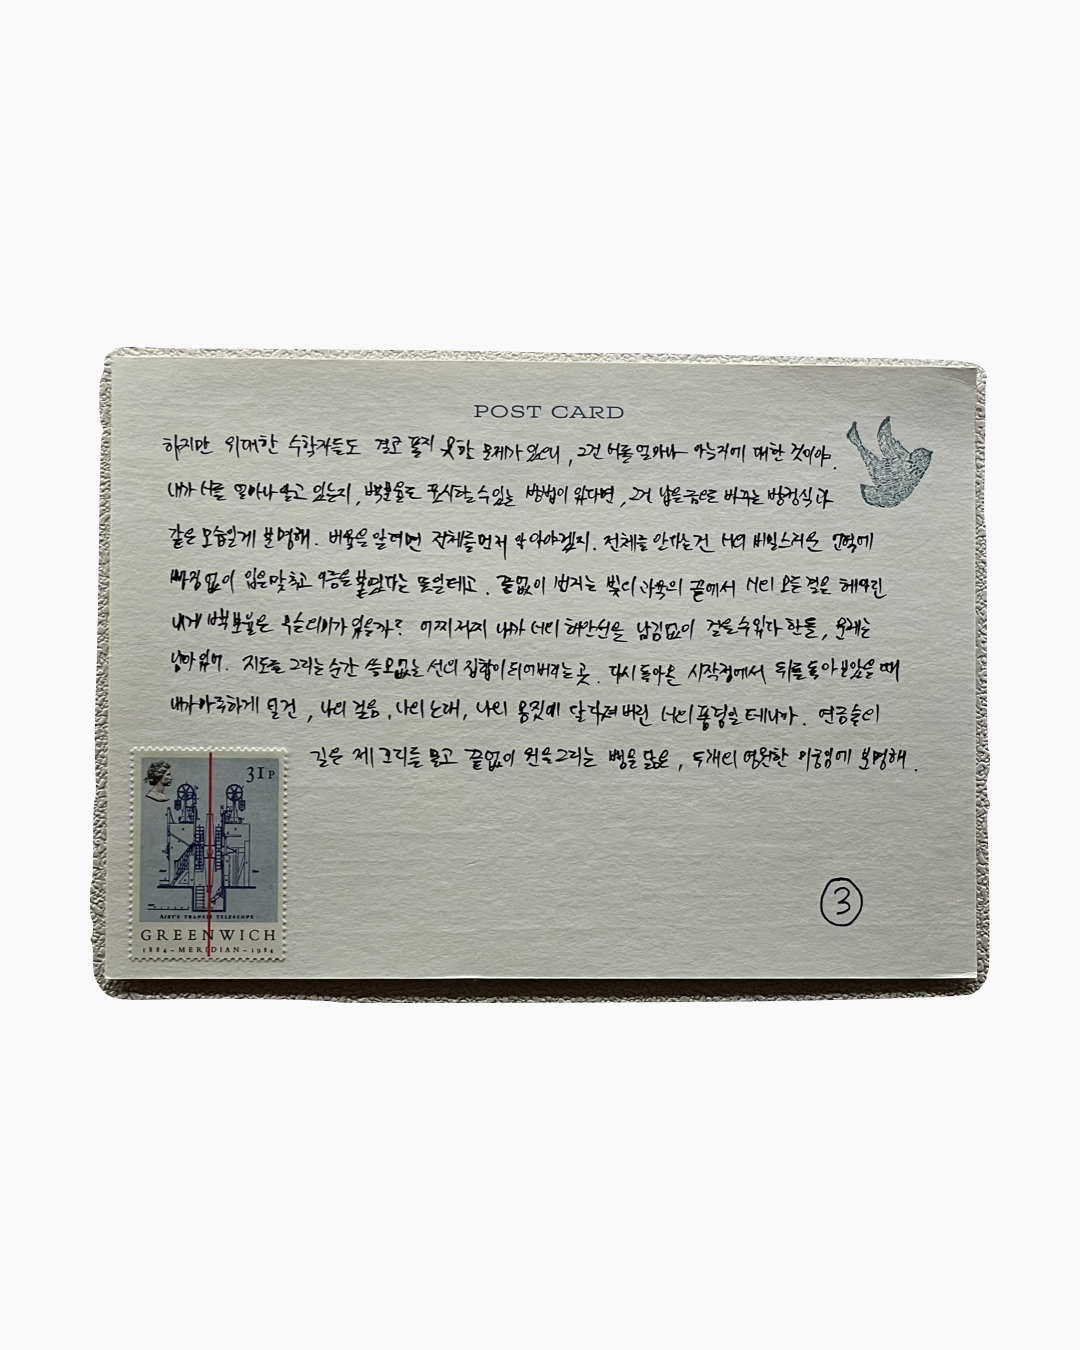 POST CARD
하지만 위대한 수학자들도 결코 풀지 못한 문제가 있으니, 그건 너를 얼마나 아는지에 대한 것이야.
내가 너를 얼마나 알고 있는지, 백분율로 표시할 수 있는 방법이 있다면, 그건 납을 금으로 바꾸는 방정식과
같은 모습일게 분명해. 비율을 알려면 전체를 먼저 알아야겠지. 전체를 안다는건 너의 비밀스러운 영역에
빠짐없이 입을 맞추고 이름을 붙였다는 뜻일테고. 끝없이 번지는 빛의 끝에서 너의 모든 걸을 헤아린
내게 백분율은 무슨 의미가 있을까? 어찌저찌 내가 너의 해안선을 남김없이 걸을 수 있다 한들, 문제는
남아있어. 지도를 그리는 순간 쓸모없는 선의 집합이 되어버리는 곳. 다시 돌아온 시작점에서 뒤를 돌아보았을 때
내가 마주하게 될건, 나의 걸음, 나의 노래, 나의 몸짓에 달라져버린 너의 풍경일테니까. 연금술의
길은 제 꼬리를 물고 끝없이 원을 그리는 뱀을 닮은, 두개의 영원한 미궁임에 분명해.
31P
AIRY'S TRANSIT TELESCOPE
GREENWICH
1884-MERIDIAN-1984
3